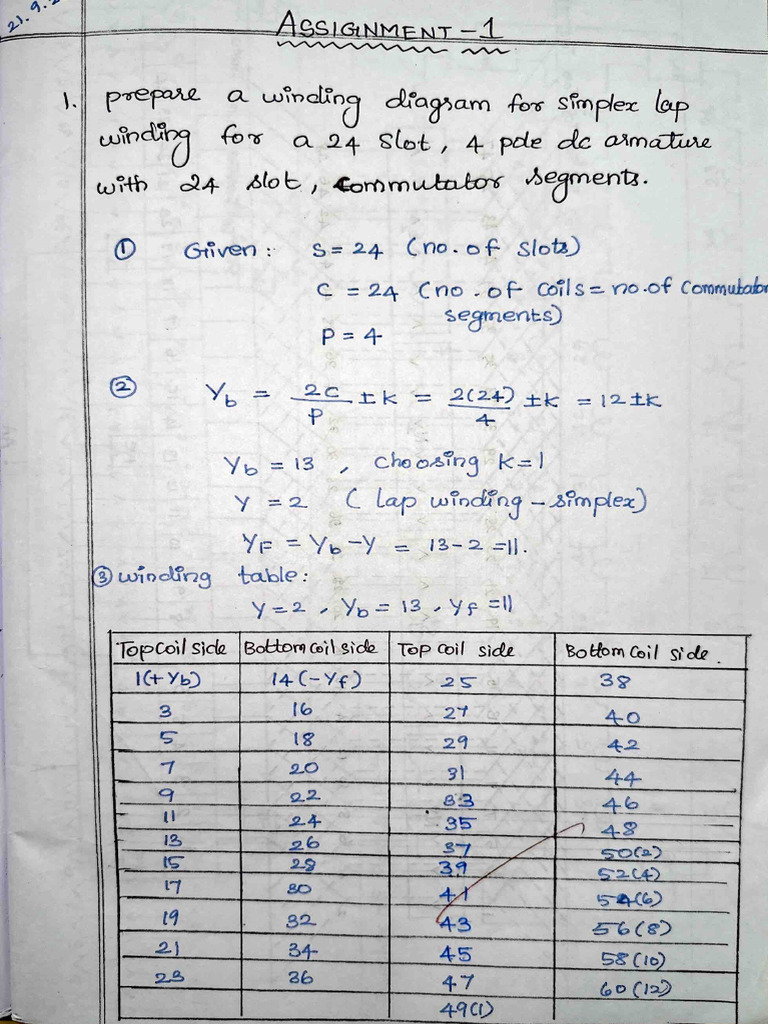 21.9.2
ASSIGNMENT - 1
1. prepare a winding diagram for simplex lap
winding for a 24 slot, 4 pole dc armature
with 24 slot, commutator segments.
① Given: S = 24 (no. of slots)
C = 24 (no. of coils = no. of commutator
segments)
P = 4
② Yb = 2C/P ± K = 2(24)/4 ± K = 12 ± K
Yb = 13, choosing K=1
Y = 2 (lap winding - simplex)
YF = Yb - Y = 13-2 = 11.
③ winding table:
Y = 2, Yb = 13, Yf = 11
Top coil side Bottom coil side Top coil side Bottom coil side.
1(+Yb) 14(-Yf) 25 38
3 16 27 40
5 18 29 42
7 20 31 44
9 22 33 46
11 24 35 48
13 26 37 50(2)
15 28 39 52(4)
17 30 41 54(6)
19 32 43 56(8)
21 34 45 58(10)
23 36 47 60(12)
49(1)